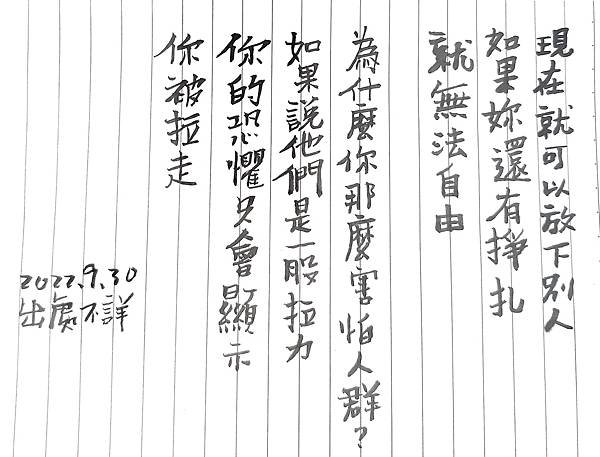 現在就可以放下別人
如果妳還有掙扎
就無法自由
為什麼你那麼害怕人群？
如果說他們是一股拉力
你的恐懼只會顯示
你被拉走
2022.9.30
出處不詳